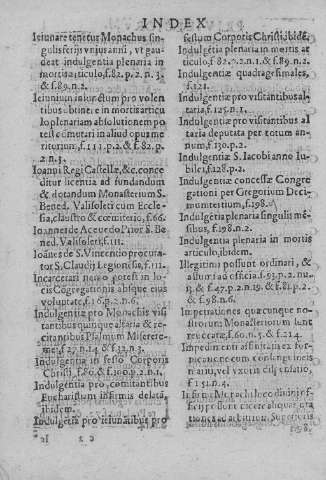 INDEX
Ieiunare tenetur Monachus sin-
gulis ferijs
deat indulgentia plenaria in
mortis articulo, f.82. p.2. n.3.
& f.89. n.2.
Ieiunium iniunctum pro volen
tibus obtinere in mortis articu
lo plenariam absolutionem po
test cōmutari in aliud opus me
ritorium, f.111. p.2. & f.82. p.
2. n.3.
Ioanni Regi Castellæ, &c. conce
ditur licentia ad fundandum
& dotandum Monasterium S.
Bened. Valisoleti cum Eccle-
sia, claustro, & cœmiterio, f.66.
Ioannes de Acevedo Prior S. Be
ned. Valisoleti, f.111.
Ioānes de S. Vincentio procura-
tor S. Claudij Legionensis, f.111.
Incarcerari nemo potest in lo-
cis Cōgregationis absque eius
voluntate, f.16. p.2. n.6.
Indulgentiæ pro Monachis visi
tantibus quinque altaria & re-
citantibus Psalmum Miserere-
mei, f.27. n.14. & f.32. n.3.
Indulgentia in festo Corporis
Christi, f.80. & f.100. p.2. n.1.
Indulgentia pro comitantibus
Eucharistium infirmis delatā,
ibidem.
Indulgentia pro ieiunantibus pro
festum Corporis Christi, ibidē.
Indulgētia plenaria in mortis ar
ticulo, f.82. p.2. n.1. & f.89. n.2.
Indulgentiæ quadragesimales,
f.121.
Indulgentiæ pro visitantibus al-
taria, f.125. n.1.
Indulgentiæ pro visitantibus al
taria deputata per totum an-
num, f.130. p.2.
Indulgentiæ S. Iacobi anno Iu-
bilei, f.128. p.2.
Indulgentiæ concessæ Congre
gationi per Gregorium Deci-
mumtertium, f.198.
Indulgētia plenaria singulis mē-
sibus, f.198. n.2.
Indulgentia plenaria in mortis
articulo, ibidem.
Illegitimi possunt ordinari, &
assumi ad officia, f.93. p.2. nu.
3. & f.47. p.2. n.19. & f.81. p.2.
& f.98. n.6.
Impetrationes quæcunque no-
strorum Monasteriorum sunt
revocatæ, f.60. n.5. & f.214.
Impedimenti affinitatis ex for-
nicatione cum consanguineis
nati, vel vxoris dispensatio,
f.151. n.4.